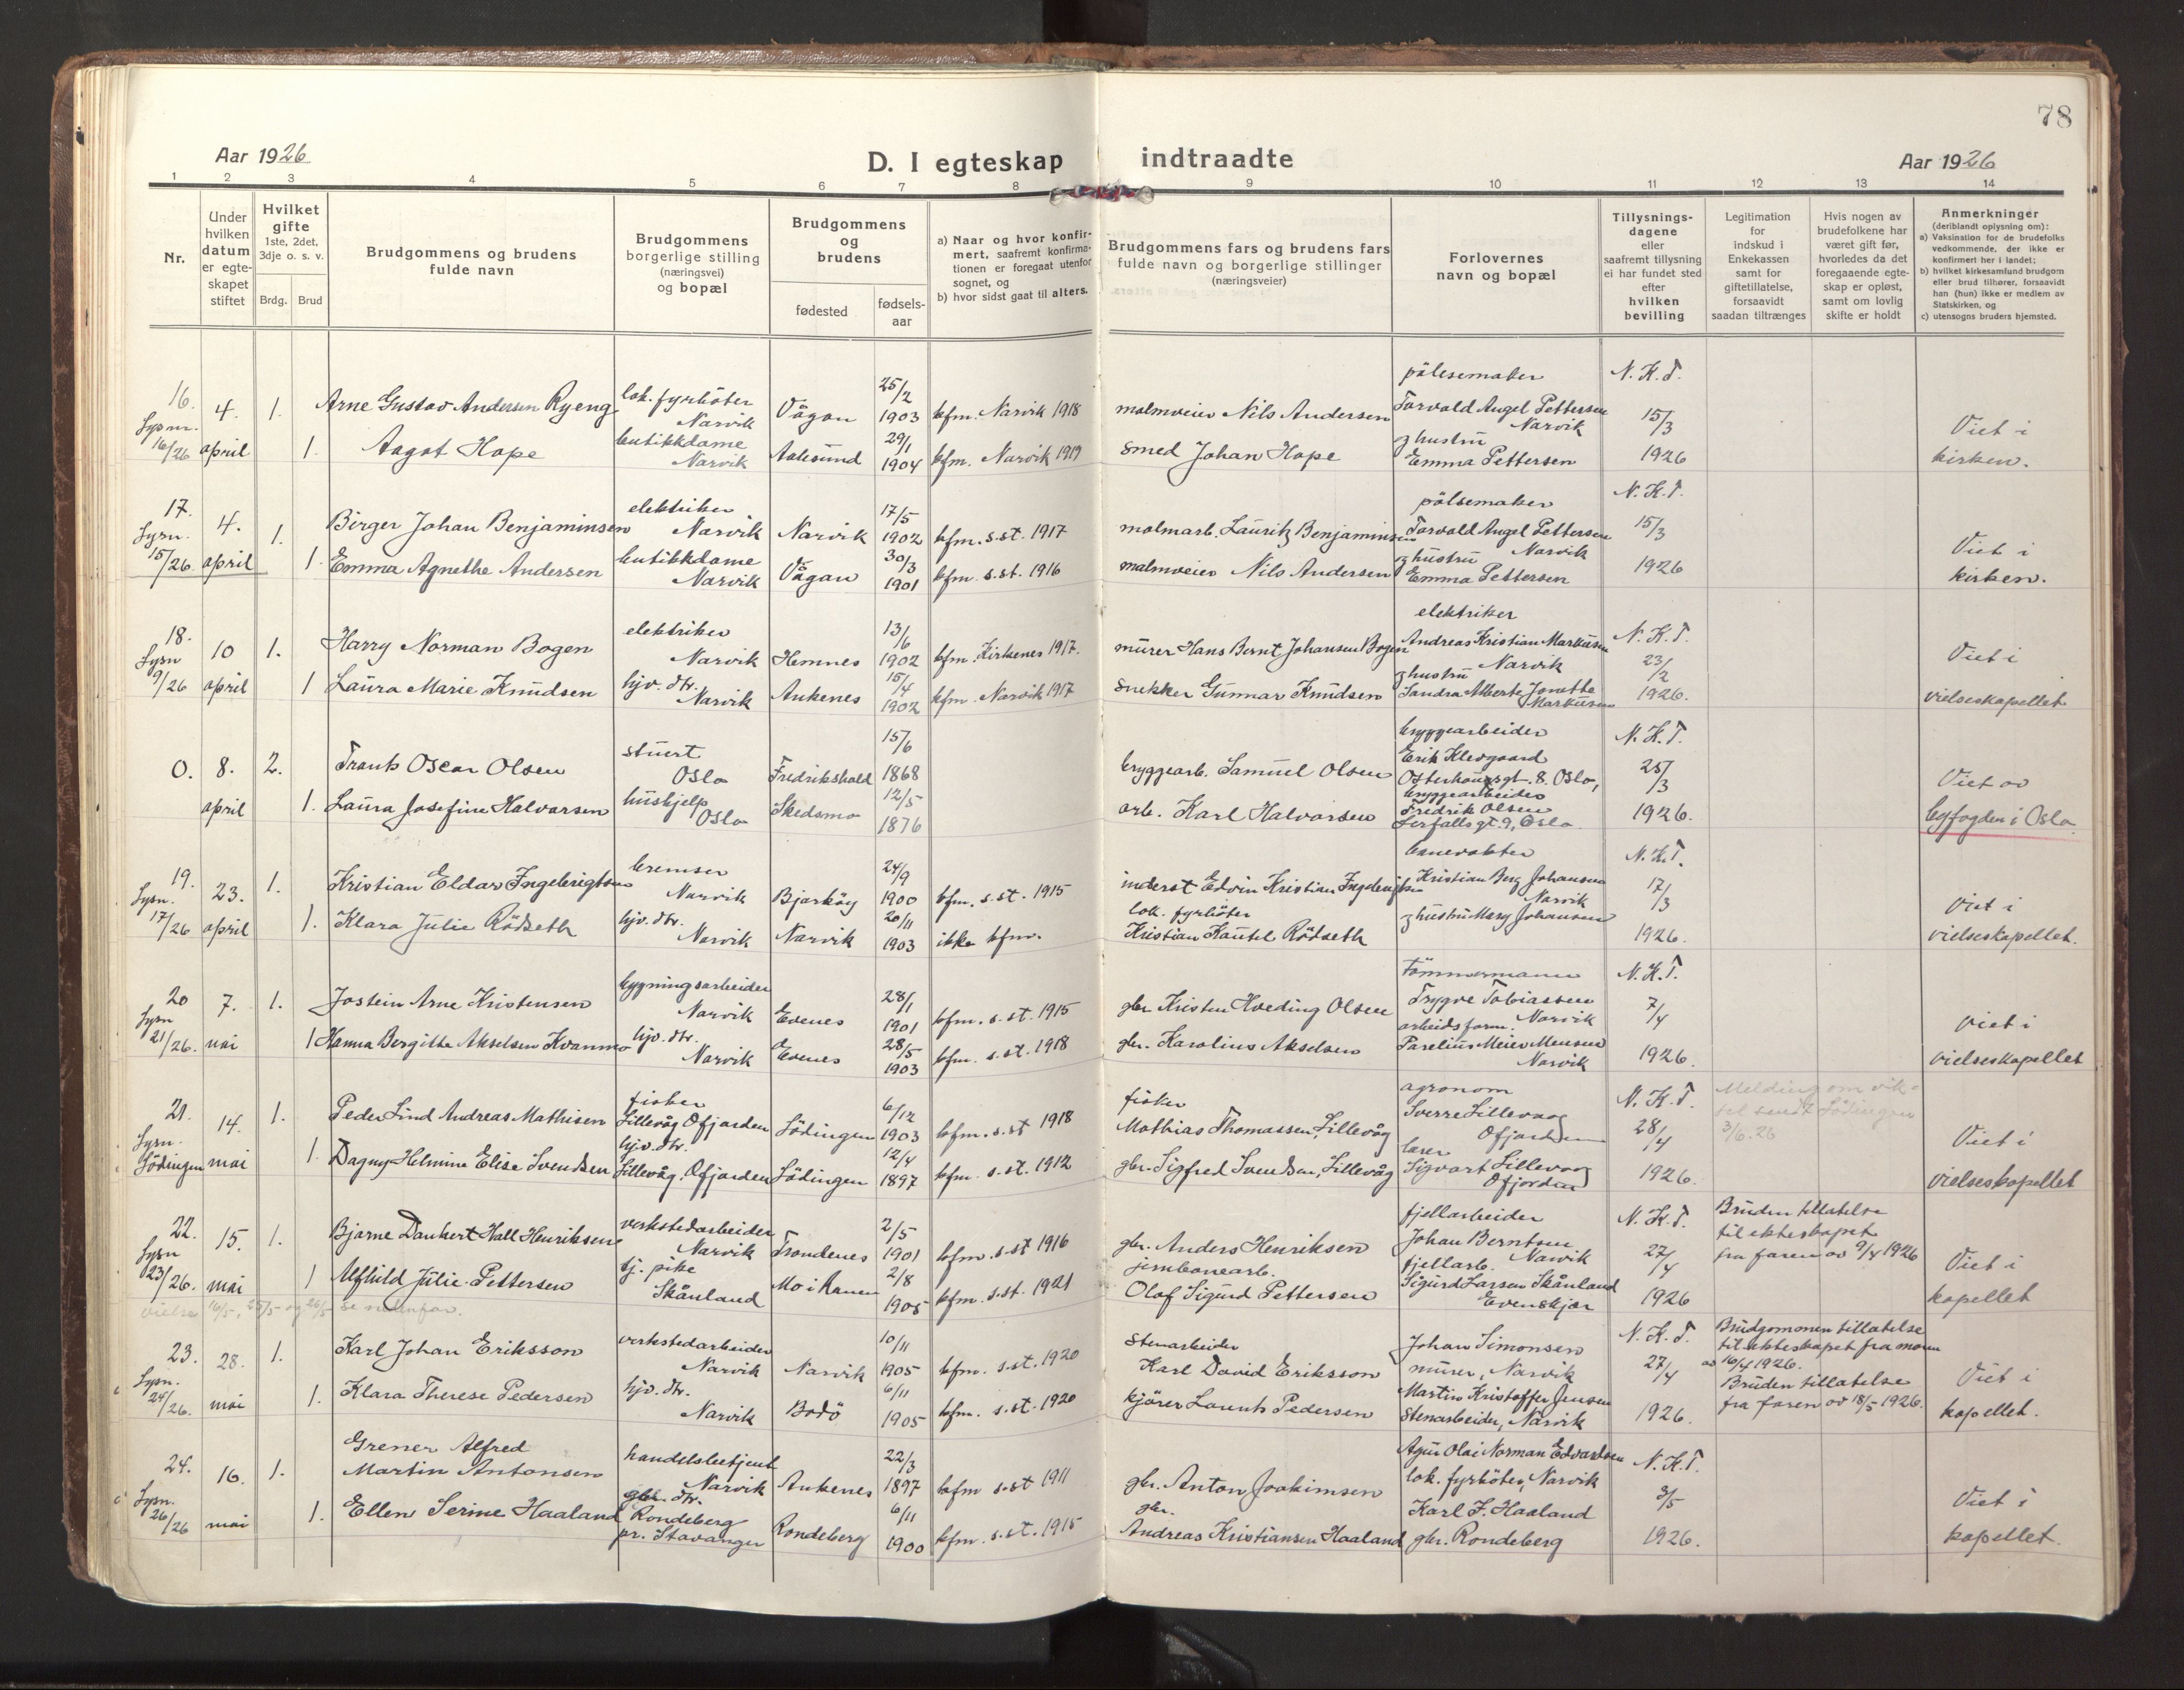 78
Aar 1926
D. I egteskap indtraadte
Aar 1926
1 2 3 4 5 6 7 8 9 10 11 12 13 14
Nr.
Under hvilken datum er egteskapet stiftet
Hvilket gifte 1ste, 2det, 3dje o. s. v.
Brdg. Brud
Brudgommens og brudens fulde navn
Brudgommens borgerlige stilling (næringsvei) og bopæl
Brudgommens og brudens
fødested
fødselsaar
a) Naar og hvor konfirmert, saafremt konfirmationen er foregaat utenfor sognet, og
b) hvor sidst gaat til alters.
Brudgommens fars og brudens fars fulde navn og borgerlige stillinger (næringsveier)
Forlovernes navn og bopæl
Tillysningsdagene eller saafremt tillysning ei har fundet sted efter hvilken bevilling
Legitimation for indskud i Enkekassen samt for giftetillatelse, forsaavidt saadan tiltrænges
Hvis nogen av brudefolkene har været gift før, hvorledes da det foregaaende egteskap er opløst, samt om lovlig skifte er holdt
Anmerkninger (deriblandt oplysning om):
a) Vaksination for de brudefolks vedkommende, der ikke er konfirmert her i landet;
b) hvilket kirkesamfund brudgom eller brud tilhører, forsaavidt han (hun) ikke er medlem av Statskirken, og
c) utensogns bruders hjemsted.
16. Lysnr. 16/26
4. april
1. Arne Gustav Andersen Ryeng
lok. fyrböter Narvik
Vågan 25/2 1903
kfm. Narvik 1918
malmveier Nils Andersen
1. Aagot Hope
butikkdame Narvik
Aalesund 29/1 1904
kfm. Narvik 1919
smed Johan Hope
pölsemaker Torvald Angel Pettersen Narvik
og hustru Emma Pettersen
N. K. T. 15/3 1926
Viet i kirken.
17. Lysn. 15/26.
4. april
1. Birger Johan Benjaminsen
elektriker Narvik
Narvik 17/5 1902
kfm. s.st. 1917
malmarb. Lauritz Benjaminsen
1. Emma Agnethe Andersen
butikkdame Narvik
Vågan 30/3 1901
kfm s.st. 1916
malmveier Nils Andersen
pölsemaker Torvald Angel Pettersen Narvik
og hustru Emma Pettersen
N. K. T. 15/3 1926
Viet i kirken.
18. Lysn 9/26
10 april
1. Harry Norman Bogen
elektriker Narvik
Hemnes 13/6 1902
kfm. Kirkenes 1917.
murer Hans Bernt Johansen Bogen
1 Laura Marie Knudsen
hjv. dtr. Narvik
Ankenes 15/4 1902
kfm. Narvik 1917
snekker Gunnar Knudsen
elektriker Andreas Kristian Markusen Narvik
og hustru Sandra Alberte Jonette Markusen
N. K. T. 23/2 1926.
Viet i vielseskapellet
0. 8. april
2. Frank Oscar Olsen
stuert Oslo
Fredrikshald 15/6 1868
bryggearb. Samuel Olsen
1. Laura Josefine Halvorsen
hushjelp Oslo
Skedsmo 12/5 1876
arb. Karl Halvorsen
bryggearbeider Erik Klevgaard
Osterhausgt. 8. Oslo,
bryggearbeider Fredrik Olsen
Lerfallsgt. 9, Oslo.
N. K. T. 25/3 1926.
Viet av byfogden i Oslo.
19. Lysn. 17/26
23. april
1. Kristian Eldar Ingebrigtsen
bremser Narvik
Bjarköy 24/9 1900
kfm. s.st. 1915
inderst Edvin Kristian Ingebrigtsen
1. Klara Julie Rödseth
hjv. dtr. Narvik
Narvik 20/11 1903
ikke kfm.
lok. fyrböter Kristian Kautel Rödseth
banevokter Kristian Berg Johansen Narvik
og hustru Mary Johansen
N. K. T. 17/3 1926.
Viet i vielseskapellet.
20 Lysn 21/26.
7. mai
1. Jostein Arne Kristensen
bygningsarbeider Narvik
Evenes 28/1 1901
kfm. s.st. 1915
gbr. Kristen Hveding Olsen
1 Hanna Bergitte Akselsen Kvanmo
hjv. dtr. Narvik
Evenes 28/5 1903
kfm. s.st. 1918
gbr. Karolius Akselsen
tömmermann Trygve Tobiassen Narvik
arbeidsform. Parelius Meier Monsen Narvik
N. K. T. 7/4 1926.
viet i vielseskapellet
21. Lysn. Lödingen
14. mai
1. Peder Lind Andreas Mathisen
fisker Lillevåg Ofjorden
Lödingen 6/12 1903
kfm. s.st 1918
fisker Mathias Thomassen, Lillevåg
1. Dagny Helmine Elise Svendsen
hjv. dtr. Lillevåg, Ofjorden
Lödingen 12/4 1897
kfm. s.st. 1912
gbr. Sigfred Svendsen, Lillevåg
agronom Sverre Lillevaag Ofjorden
lærer Sigvart Lillevaag Ofjorden
N. K. T 28/4 1926.
Melding om vielsel sendt Lödingen 3/6. 26
Viet i vielseskapellet
22. Lysn 23/26.
15. mai
1. Bjarne Dankert Hall Henriksen
verkstedarbeider Narvik
Trondenes 2/5 1901
kfm. s.st 1916
gbr. Anders Henriksen
1 Alfhild Julie Pettersen
tj. pike Skånland
Mo i Ranen 2/8 1905
kfm. s.st. 1921
jernbanearb. Olaf Sigurd Pettersen
fjellarbeider Johan Berntsen Narvik
fjellarb. Sigurd Larsen Skånland Evenskjær
N. K. T. 27/4 1926
Bruden tillatelse til ekteskapet fra faren av 9/4 1926
Viet i kapellet
vielse 16/5, 25/5 og 26/5 se nedenfor.
23. Lysn. 24/26.
28. mai
1. Karl Johan Eriksson
verkstedarbeider Narvik
Narvik 10/11 1905
kfm. s.st. 1920
Stenarbeider Karl David Eriksson
1. Klara Therese Pedersen
hjv. dtr. Narvik
Bodö 6/11 1905
kfm. s.st. 1920
kjörer Laurits Pedersen
Johan Simonsen murer, Narvik
Martin Kristoffer Jensen Stenarbeider, Narvik
N. K. T. 27/4 1926.
Brudgommen tillatelse til ekteskapet fra moren av 16/4 1926.
Bruden tillatelse fra faren av 18/5 1926.
Viet i kapellet.
24. Lysn. 26/26
16. mai
1. Grener Alfred Martin Antonsen
handelsbetjent Narvik
Ankenes 22/3 1897
kfm s.st 1911
gbr. Anton Joakimsen
1. Ellen Serine Haaland
gbr. dtr. Rondeberg pr. Stavanger
Rondeberg 6/11 1900
kfm. s.st. 1915
gbr. Andreas Kristiansen Haaland
Agur Olai Norman Edvardsen
lok. fyrböter, Narvik
Karl F. Haaland
gbr. Rondeberg
N. K. T. 3/5 1926.
Viet i kapellet.